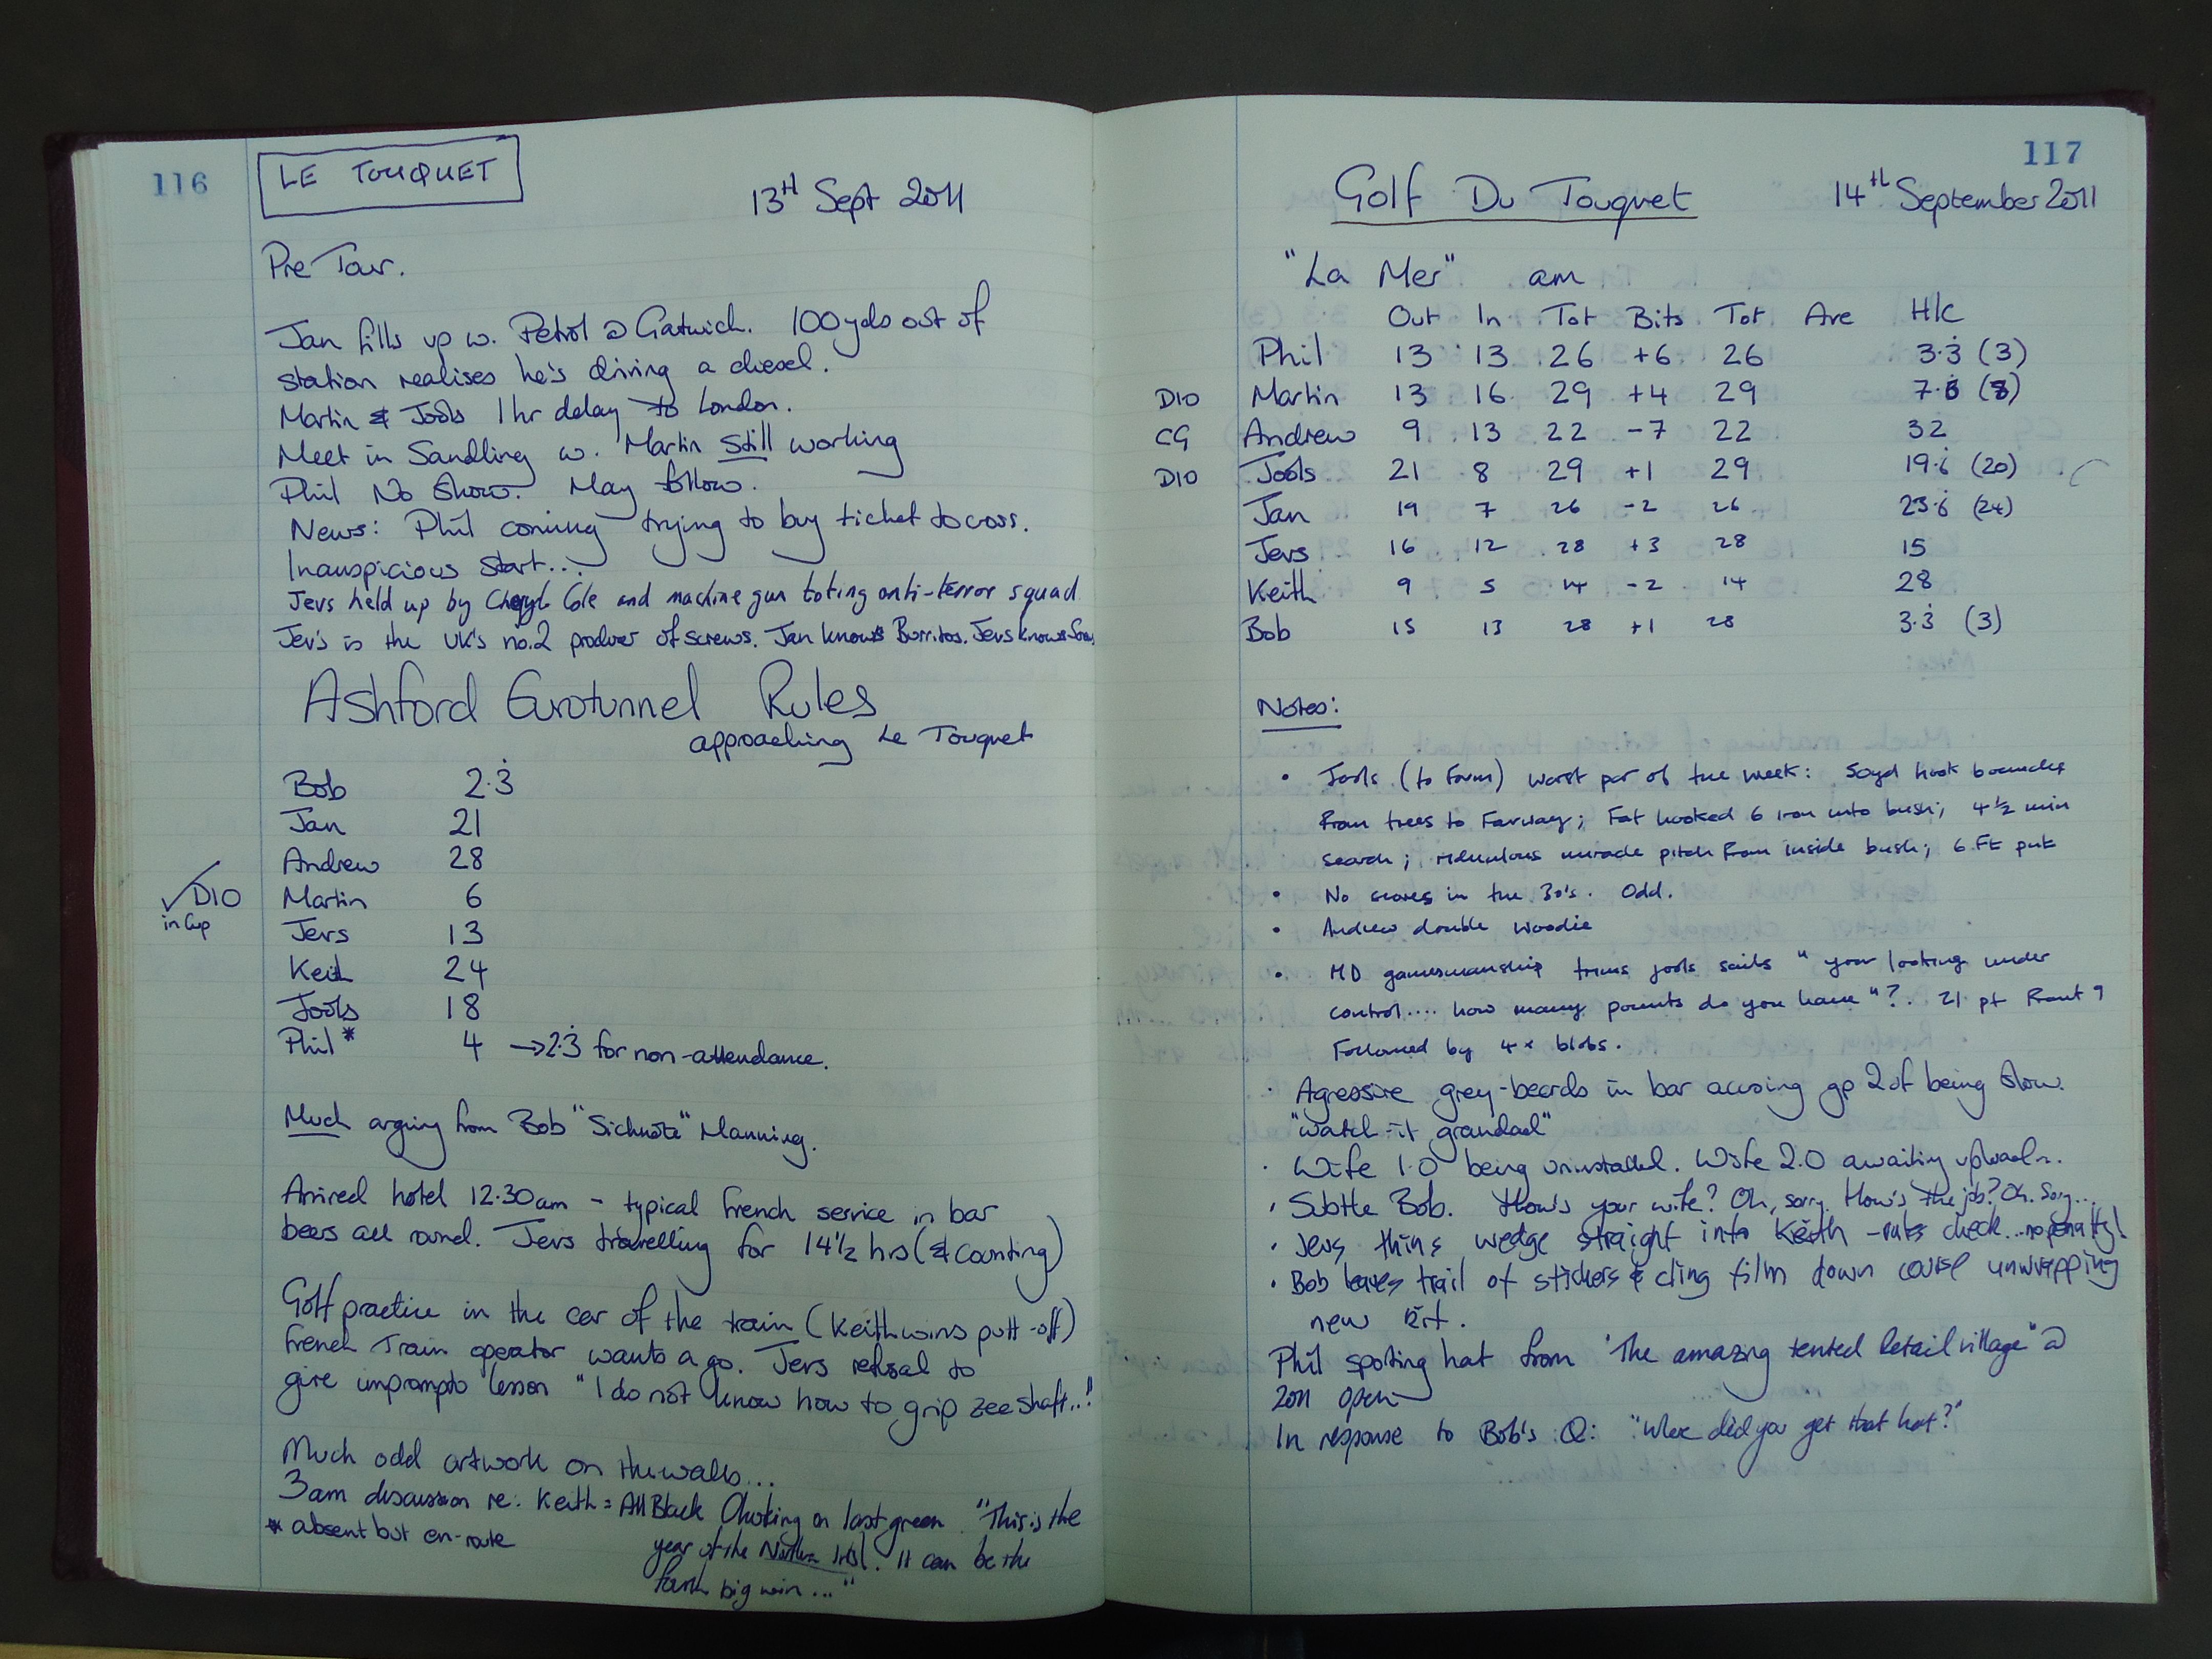 116
LE TOUQUET
13TH Sept 2011
Pre Tour.
Jan fills up w. Petrol @ Gatwick. 100yds out of
station realises he's driving a diesel.
Martin & Jools 1hr delay to London.
Meet in Sandling w. Martin still working
Phil No Show. May follow.
News: Phil coming trying to buy ticket to cross.
Inauspicious start...
Jevs held up by Cheryl Cole and machine gun toting anti-terror squad
Jev's is the UK's no.2 producer of screws. Jan knows Burritos. Jevs knows
Ashford Eurotunnel Rules
approaching Le Touquet
Bob 2.3̇
Jan 21
Andrew 28
✓D10 Martin 6
in Cup
Jevs 13
Keith 24
Jools 18
Phil* 4 →2.3̇ for non-attendance.
Much arguing from Bob "Sicknote" Manning.
Arrived hotel 12.30am - typical French service in bar
beers all round. Jevs travelling for 14½ hrs (& counting)
Golf practice in the car of the train (Keith wins putt-off)
French Train operator wants a go. Jevs refusal to
give impromptu lesson "I do not know how to grip zee shaft.."
Much odd artwork on the walls...
3am discussion re: Keith = All Black Choking on last green "This is the
* absent but en-route
year of the Northern Irish. It can be the
fourth big win..."
117
Golf Du Touquet 14th September 2011
"La Mer" am
Out In Tot Bits Tot Ave H/C
Phil 13 13 26 +6 26 3.3̇ (3)
D10 Martin 13 16 29 +4 29 7.6̇ (8)
CG Andrew 9 13 22 -7 22 32
D10 Jools 21 8 29 +1 29 19.6̇ (20)
Jan 19 7 26 -2 26 23.6̇ (24)
Jevs 16 12 28 +3 28 15
Keith 9 5 14 -2 14 28
Bob 15 13 28 +1 28 3.3̇ (3)
Notes:
• Jools (to form) worst par of the week: 50yd hook bounces
From trees to Farway; Fat hooked 6 iron into bush; 4½ min
search; ridiculous miracle pitch From inside bush; 6 Ft putt
• No scores in the 30's. Odd.
• Andrew double woodie
• MD gamesmanship trims jools sails "your looking under
control.... how many points do you have"?. 21 pt Front 9
Followed by 4x blobs.
• Agressive grey-beards in bar accusing gp 2 of being slow.
"watch-it grandad"
• Wife 1.0 being uninstalled. Wife 2.0 awaiting upload..
• Subtle Bob. How's your wife? Oh, sorry. How's the job? Oh. Sorry...
• Jevs thins wedge straight into Keith - rules check...no penalty!
• Bob leaves trail of stickers & cling film down course unwrapping
new kit.
Phil sporting hat from "The amazing tented retail village" @
2011 open
In response to Bob's Q: "Where did you get that hat?"